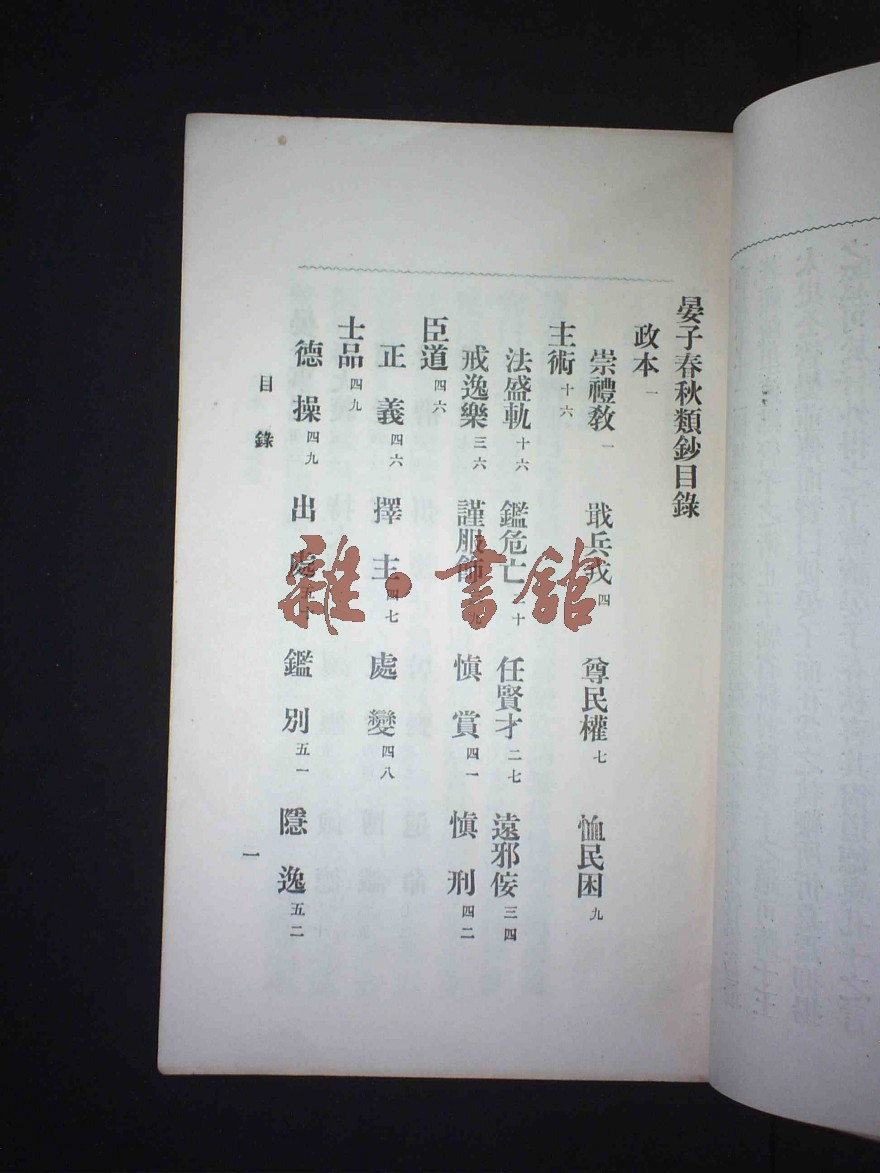 晏子春秋類鈔目錄
政本 一
崇禮敎 一 戢兵戎 四 尊民權 七 恤民困 九
主術 十六
法盛軌 十六 鑑危亡 二十 任賢才 二七 遠邪佞 三四
戒逸樂 三六 謹服飾 愼賞 四一 愼刑 四二
臣道 四六
正義 四六 擇主 四七 處變 四八
士品 四九
德操 四九 出處 鑑別 五一 隱逸 五二
目錄
一
雜·書館